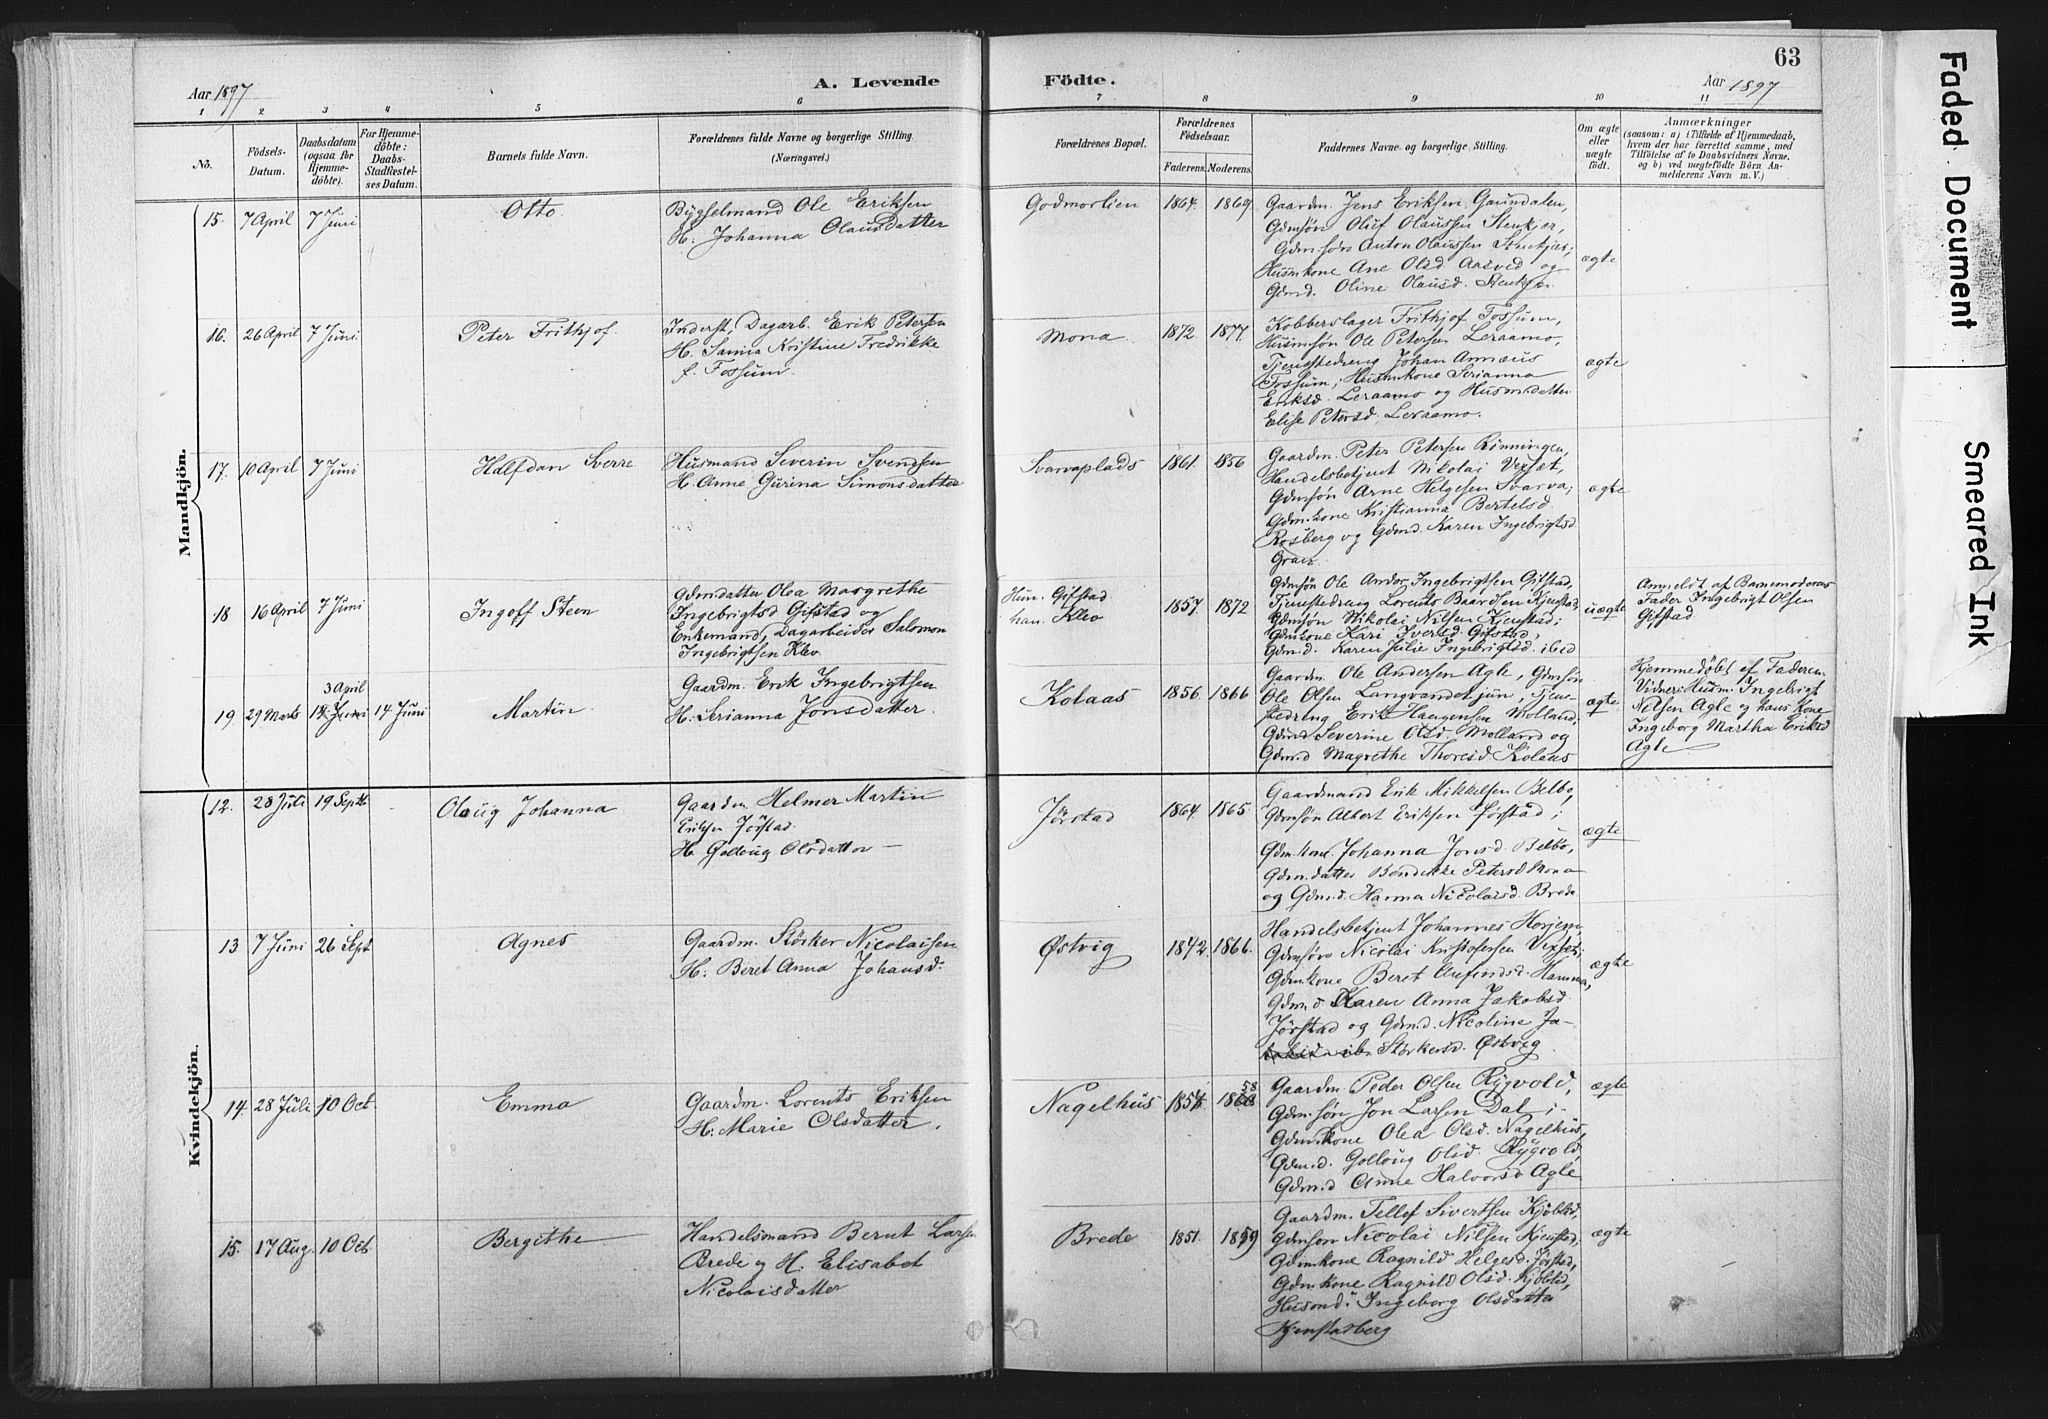 63
Aar 1897
A. Levende
Födte.
Aar 1897
1 2 3 4 5 6 7 8 9 10 11
No.
Födsels-
Datum.
Daabsdatum
(ogsaa for
Hjemme-
döbte).
For Hjemme-
döbte:
Daabs-
Stadfæstel-
ses Datum.
Barnets fulde Navn.
Forældrenes fulde Navne og borgerlige Stilling.
(Næringsvei.)
Forældrenes Bopæl.
Forældrenes
Födselsaar.
Faderens. Moderens.
Faddernes Navne og borgerlige Stilling.
Om ægte
eller
uægte
født.
Anmærkninger
(saasom: a) i Tilfælde af Hjemmedaab,
hvem der har forrettet samme, med
Tilföielse af to Daabsvidners Navne,
og b) ved uægtefødte Börn An-
melderens Navn m. V.)
Mandkjön.
15. 7 April 7 Juni
Otto
Bygselmand Ole Eriksen
H. Johanna Olausdatter
Godmorlien
1864. 1869
Gaardm. Jens Eriksen Gaundalen,
Gdmsøn Oluf Olaussen Stenkjer,
Gdm.søn Anton Olaussen Stenkjer;
Husmkone Ane Olsd Aasved og
Gdmd. Oline Olausd. Stenkjer
ægte
16. 26 April 7 Juni
Peter Frithjof.
Inderst, Dagarb. Erik Petersen
H. Samia Kristine Fredrikke
f. Fossum.
Mona
1872 1877.
Kobberslager Frithjof Fossum,
Husmsøn Ole Petersen Leraamo,
Tjenestedreng Johan Annæus
Fossum; Husmkone Serianna
Eriksd. Leraamo og Husm.datter
Elise Petersd. Leraamo.
ægte
17. 10 April 7 Juni
Halfdan Sverre
Husmand Severin Svendsen
H. Anne Gurina Simonsdatter
Svarvaplads
1861. 1856
Gaardm. Peter Petersen Rønningen,
Handelsbetjent Nikolai Vexset,
Gdmsøn Arne Helgesen Svarva;
Gdm.kone Kristianna Bertelsd.
Rosberg og Gdmd. Karen Ingebrigtsd
ægte
18 16 April 7 Juni
Ingolf Steen
Gdmdatter Olea Margrethe
Ingebrigtsd Gifstad og
Enkemand, Dagarbeider Salomon
Ingebrigtsen Klev.
Hun. Gifstad
han. Klev
1857. 1872
Gdmsøn Ole Andor Ingebrigtsen Gifstad,
Tjenestedreng Lorents Baardsen Kjenstad,
Gdmsøn Nikolai Nilsen Kjenstad;
Gdmkone Kari Ivertsd. Gifstad,
Gdm.d. Karen Julie Ingebrigtsd. ibid
uægte
Anmeldt af Barnemoderens
Fader Ingebrigt Olsen
Gifstad.
19. 29 Marts 3 April 14 Juni 14 Juni
Martin
Gaardm. Erik Ingebrigtsen
H. Serianna Jonsdatter.
Kolaas
1856. 1866
Gaardm. Ole Andersen Agle, Gdmsøn
Ole Olsen Langvandet jun, Tjene-
stedreng Erik Haagensen Molland;
Gdmd Severine Olsd. Molland og
Gdm.d Magrethe Thoresd Kolaas
ægte
Hjemmedøbt af Faderen.
Vidner: Husm. Ingebrigt
Nilsen Agle og hans Kone
Ingeborg Martha Eriksd
Agle
Kvindekjön.
12. 28 Juli 19 Septb
Olaug Johanna
Gaardm Helmer Martin
Eriksen Jørstad.
H. Golloug Olsdatter
Jørstad
1864. 1865.
Gaardmand Erik Mikkelsen Belbo,
Gdmsøn Albert Eriksen Jørstad;
Gdm.kone Johanna Jonsd. Belbo,
Gdm.datter Bendikke Petersd Mona
og Gdm.d. Hanna Nicolaisd. Brede
ægte
13 7 Juni 26 Sept
Agnes
Gaardm. Størker Nicolaisen
H: Beret Anna Johansd.
Østvig
1842. 1866.
Handelsbetjent Johannes Horjem,
Gdmsøn Nicolai Kristofersen Vexset;
Gdm.kone Beret Arnfindsd. Hamma,
Gdm.d Karen Anna Jakobsd
Jørstad og Gdm.d. Nicoline Ja-
Størkersd. Østvig
ægte
14. 28 Juli 10 Oct
Emma
Gaardm. Lorents Eriksen
H: Marie Olsdatter.
Nagelhus
1854 1858
Gaardm. Peder Olsen Rygvold,
Gdm.søn Jon Larsen Dal;
Gdm.kone Olea Olsd. Nagelhus,
Gdm.d. Golloug Olsd. Rygvold,
Gdm.d Anne Halvorsd Agle
ægte
15. 17 Aug. 10 Oct
Bergithe
Handelsmand Bernt Larsen
Brede og H. Elisabet
Nicolaisdatter
Brede
1851. 1859
Gaardm. Tellef Sivertsen Kjøblid,
Gdmsøn Nicolai Nilsen Kjenstad;
Gdm.kone Ragnild Helgesd. Jørstad,
Gdm.kone Ragnild Olsd. Kjøblid,
Husmd. Ingeborg Olsdatter
Kjenstadberg
ægte
Faded Document
Smeared Ink